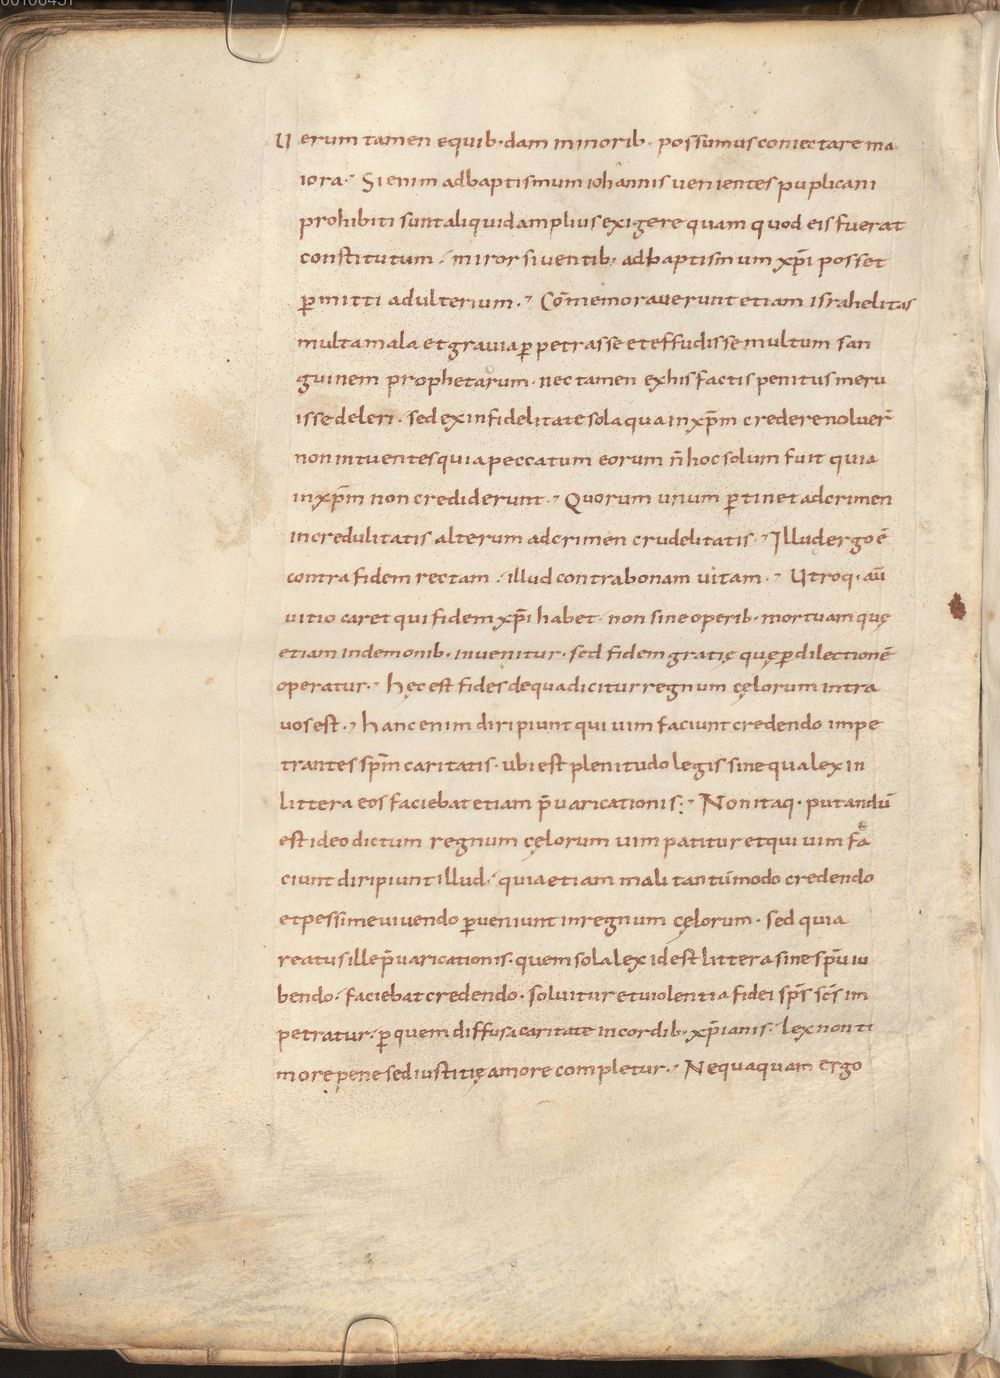 00100431
Uerum tamen equib·dam minorib· possumus coniectare ma
iora·, Si enim ad baptismum iohannis uenientes puplicani
prohibiti sunt aliquid amplius exigere quam quod eis fuerat
constitutum · miror si uentib; ad baptismum xp̄i posset
ꝑmitti adulterium ·, Cōmemorauerunt etiam israhelitas
multa mala et grauia ꝑpetrasse et effudisse multum san
guinem prophetarum · nec tamen ex his factis penitus meru
isse deleri · sed ex infidelitate sola qua in xp̄m credere noluer̄
non intuentes quia peccatum eorum n̄ hoc solum fuit quia
in xp̄m non crediderunt ·, Quorum unum ꝑtinet ad crimen
incredulitatis alterum ad crimen crudelitatis ·, Illud ergo ē
contra fidem rectam · illud contra bonam uitam ·, Utroq· aū
uitio caret qui fidem xp̄i habet · non sine operib· mortuam quę
etiam in demonib· inuenitur · sed fidem gratię quę ꝑ dilectionē
operatur ·, hęc est fides de qua dicitur regnum cęlorum intra
uos est ·, hanc enim diripiunt qui uim faciunt credendo impe
trantes sp̄m caritatis · ubi est plenitudo legis sine qua lex in
littera eos faciebat etiam p̄uaricationis ·, Non itaq· putandū
est ideo dictum regnum cęlorum uim patitur et qui uim fa
ciunt diripiunt illud · quia etiam mali tantūmodo credendo
et pessime uiuendo ꝑueniunt in regnum cęlorum · sed quia
reatus ille p̄uaricationis · quem sola lex id est littera sine sp̄u iu
bendo · faciebat credendo · soluitur et uiolentia fidei sp̄s sc̄s im
petratur · ꝑ quem diffusa caritate in cordib· xp̄ianis · lex non ti
more pene sed iustitię amore completur ·, Nequaquam ergo